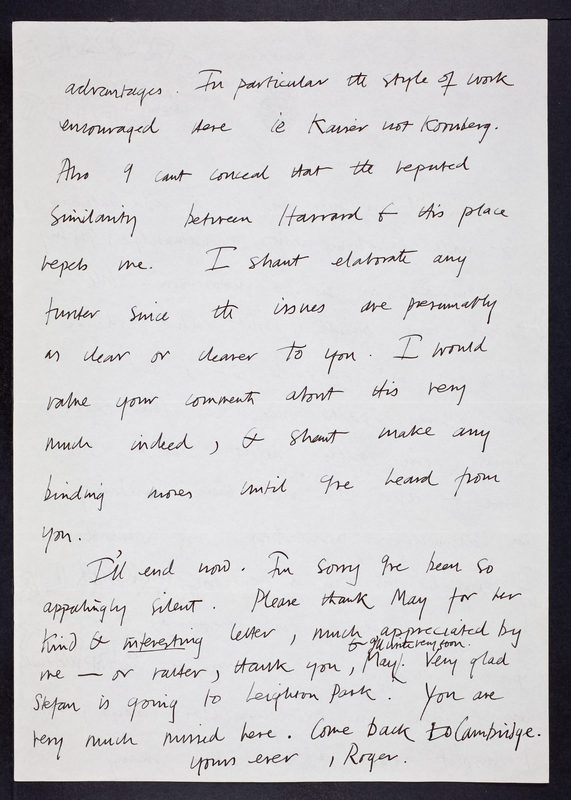 advantages. In particular the style of work
encouraged here is Kaiser not Kornberg.
Also I cant conceal that the reputed
similarity between Harvard & this place
repels me. I shant elaborate any
further since the issues are presumably
as clear or clearer to you. I would
value your comments about this very
much indeed, & shant make any
binding moves until I've heard from
you.
I'll end now. I'm sorry I've been so
appallingly silent. Please thank May for her
kind & interesting letter, much appreciated by
& I'll write very soon.
me — or rather, thank you, May. Very glad
Stefan is going to Leighton Park. You are
very much missed here. Come back to Cambridge.
yours ever, Roger.